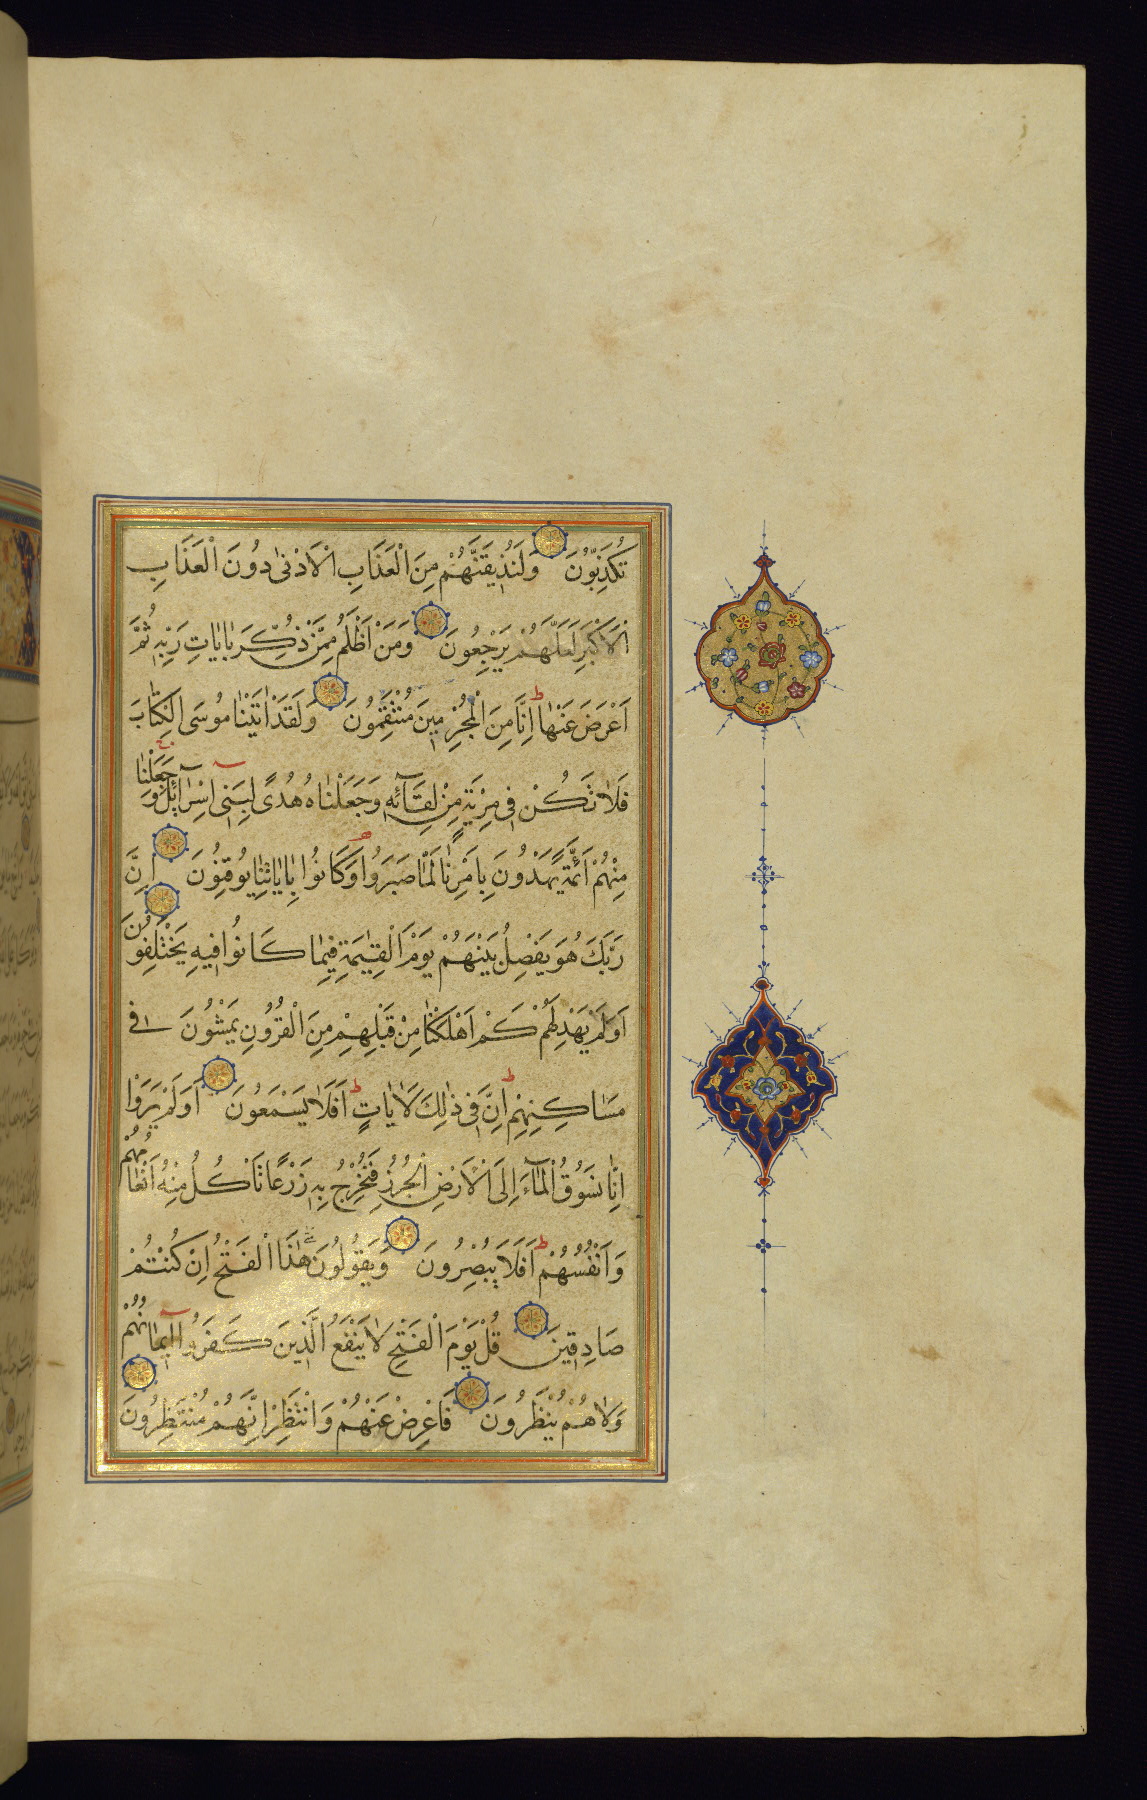 تُكَذِّبُونَ وَلَنُذِيقَنَّهُمْ مِنَ الْعَذَابِ الْاَدْنٰى دُونَ الْعَذَابِ
الْاَكْبَرِ لَعَلَّهُمْ يَرْجِعُونَ وَمَنْ اَظْلَمُ مِمَّنْ ذُكِّرَ بِاٰيَاتِ رَبِّهٖ ثُمَّ
اَعْرَضَ عَنْهَا ط اِنَّا مِنَ الْمُجْرِمِينَ مُنْتَقِمُونَ وَلَقَدْ اٰتَيْنَا مُوسَى الْكِتَابَ
فَلَا تَكُنْ فِي مِرْيَةٍ مِنْ لِقَآئِهٖ وَجَعَلْنَاهُ هُدًى لِبَنِيٓ اِسْرَآئِلَ وَجَعَلْنَا
مِنْهُمْ اَئِمَّةً يَهْدُونَ بِاَمْرِنَا لَمَّا صَبَرُوا وَكَانُوا بِاٰيَاتِنَا يُوقِنُونَ اِنَّ
رَبَّكَ هُوَ يَفْصِلُ بَيْنَهُمْ يَوْمَ الْقِيٰمَةِ فِيمَا كَانُوا فِيهِ يَخْتَلِفُونَ
اَوَلَمْ يَهْدِ لَهُمْ كَمْ اَهْلَكْنَا مِنْ قَبْلِهِمْ مِنَ الْقُرُونِ يَمْشُونَ فِي
مَسَاكِنِهِمْ ط اِنَّ فِي ذٰلِكَ لَاٰيَاتٍ ط اَفَلَا يَسْمَعُونَ اَوَلَمْ يَرَوْا
اَنَّا نَسُوقُ الْمَآءَ اِلَى الْاَرْضِ الْجُرُزِ فَنُخْرِجُ بِهٖ زَرْعًا تَاْكُلُ مِنْهُ اَنْعَامُهُمْ
وَاَنْفُسُهُمْ ط اَفَلَا يُبْصِرُونَ وَيَقُولُونَ مَتٰى هٰذَا الْفَتْحُ اِنْ كُنْتُمْ
صَادِقِينَ قُلْ يَوْمَ الْفَتْحِ لَا يَنْفَعُ الَّذِينَ كَفَرُوٓا اِيمَانُهُمْ
وَلَا هُمْ يُنْظَرُونَ فَاَعْرِضْ عَنْهُمْ وَانْتَظِرْ اِنَّهُمْ مُنْتَظِرُونَ